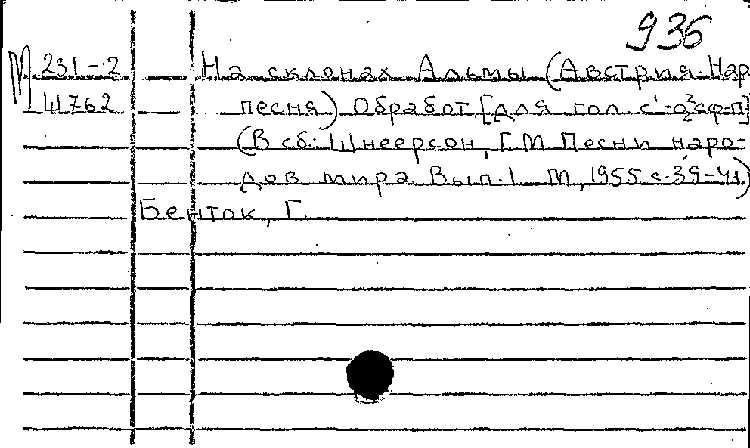 936
М 231-2 На склонах Альмы (Австрия. Нар
41762 песня) Обработ [для гол. с
(В сб.: Шнеерсон, Г. М. Песни наро-
дов мира Вып. 1 М, 1955 с. 39-41.)
Бенток, Г.